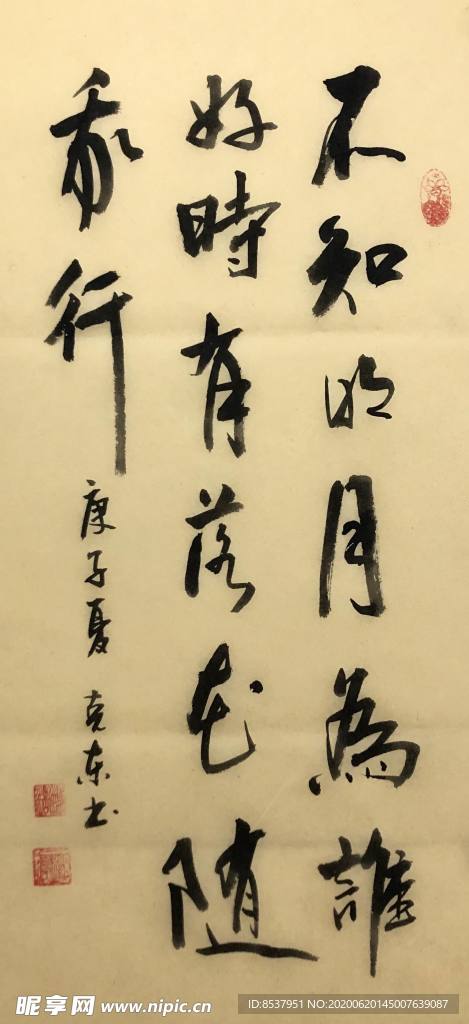 不知明月為誰
好時有落花随
我行
庚子夏 克东书
昵享网 www.nipic.cn
ID:8537951 NO:20200620145007639087